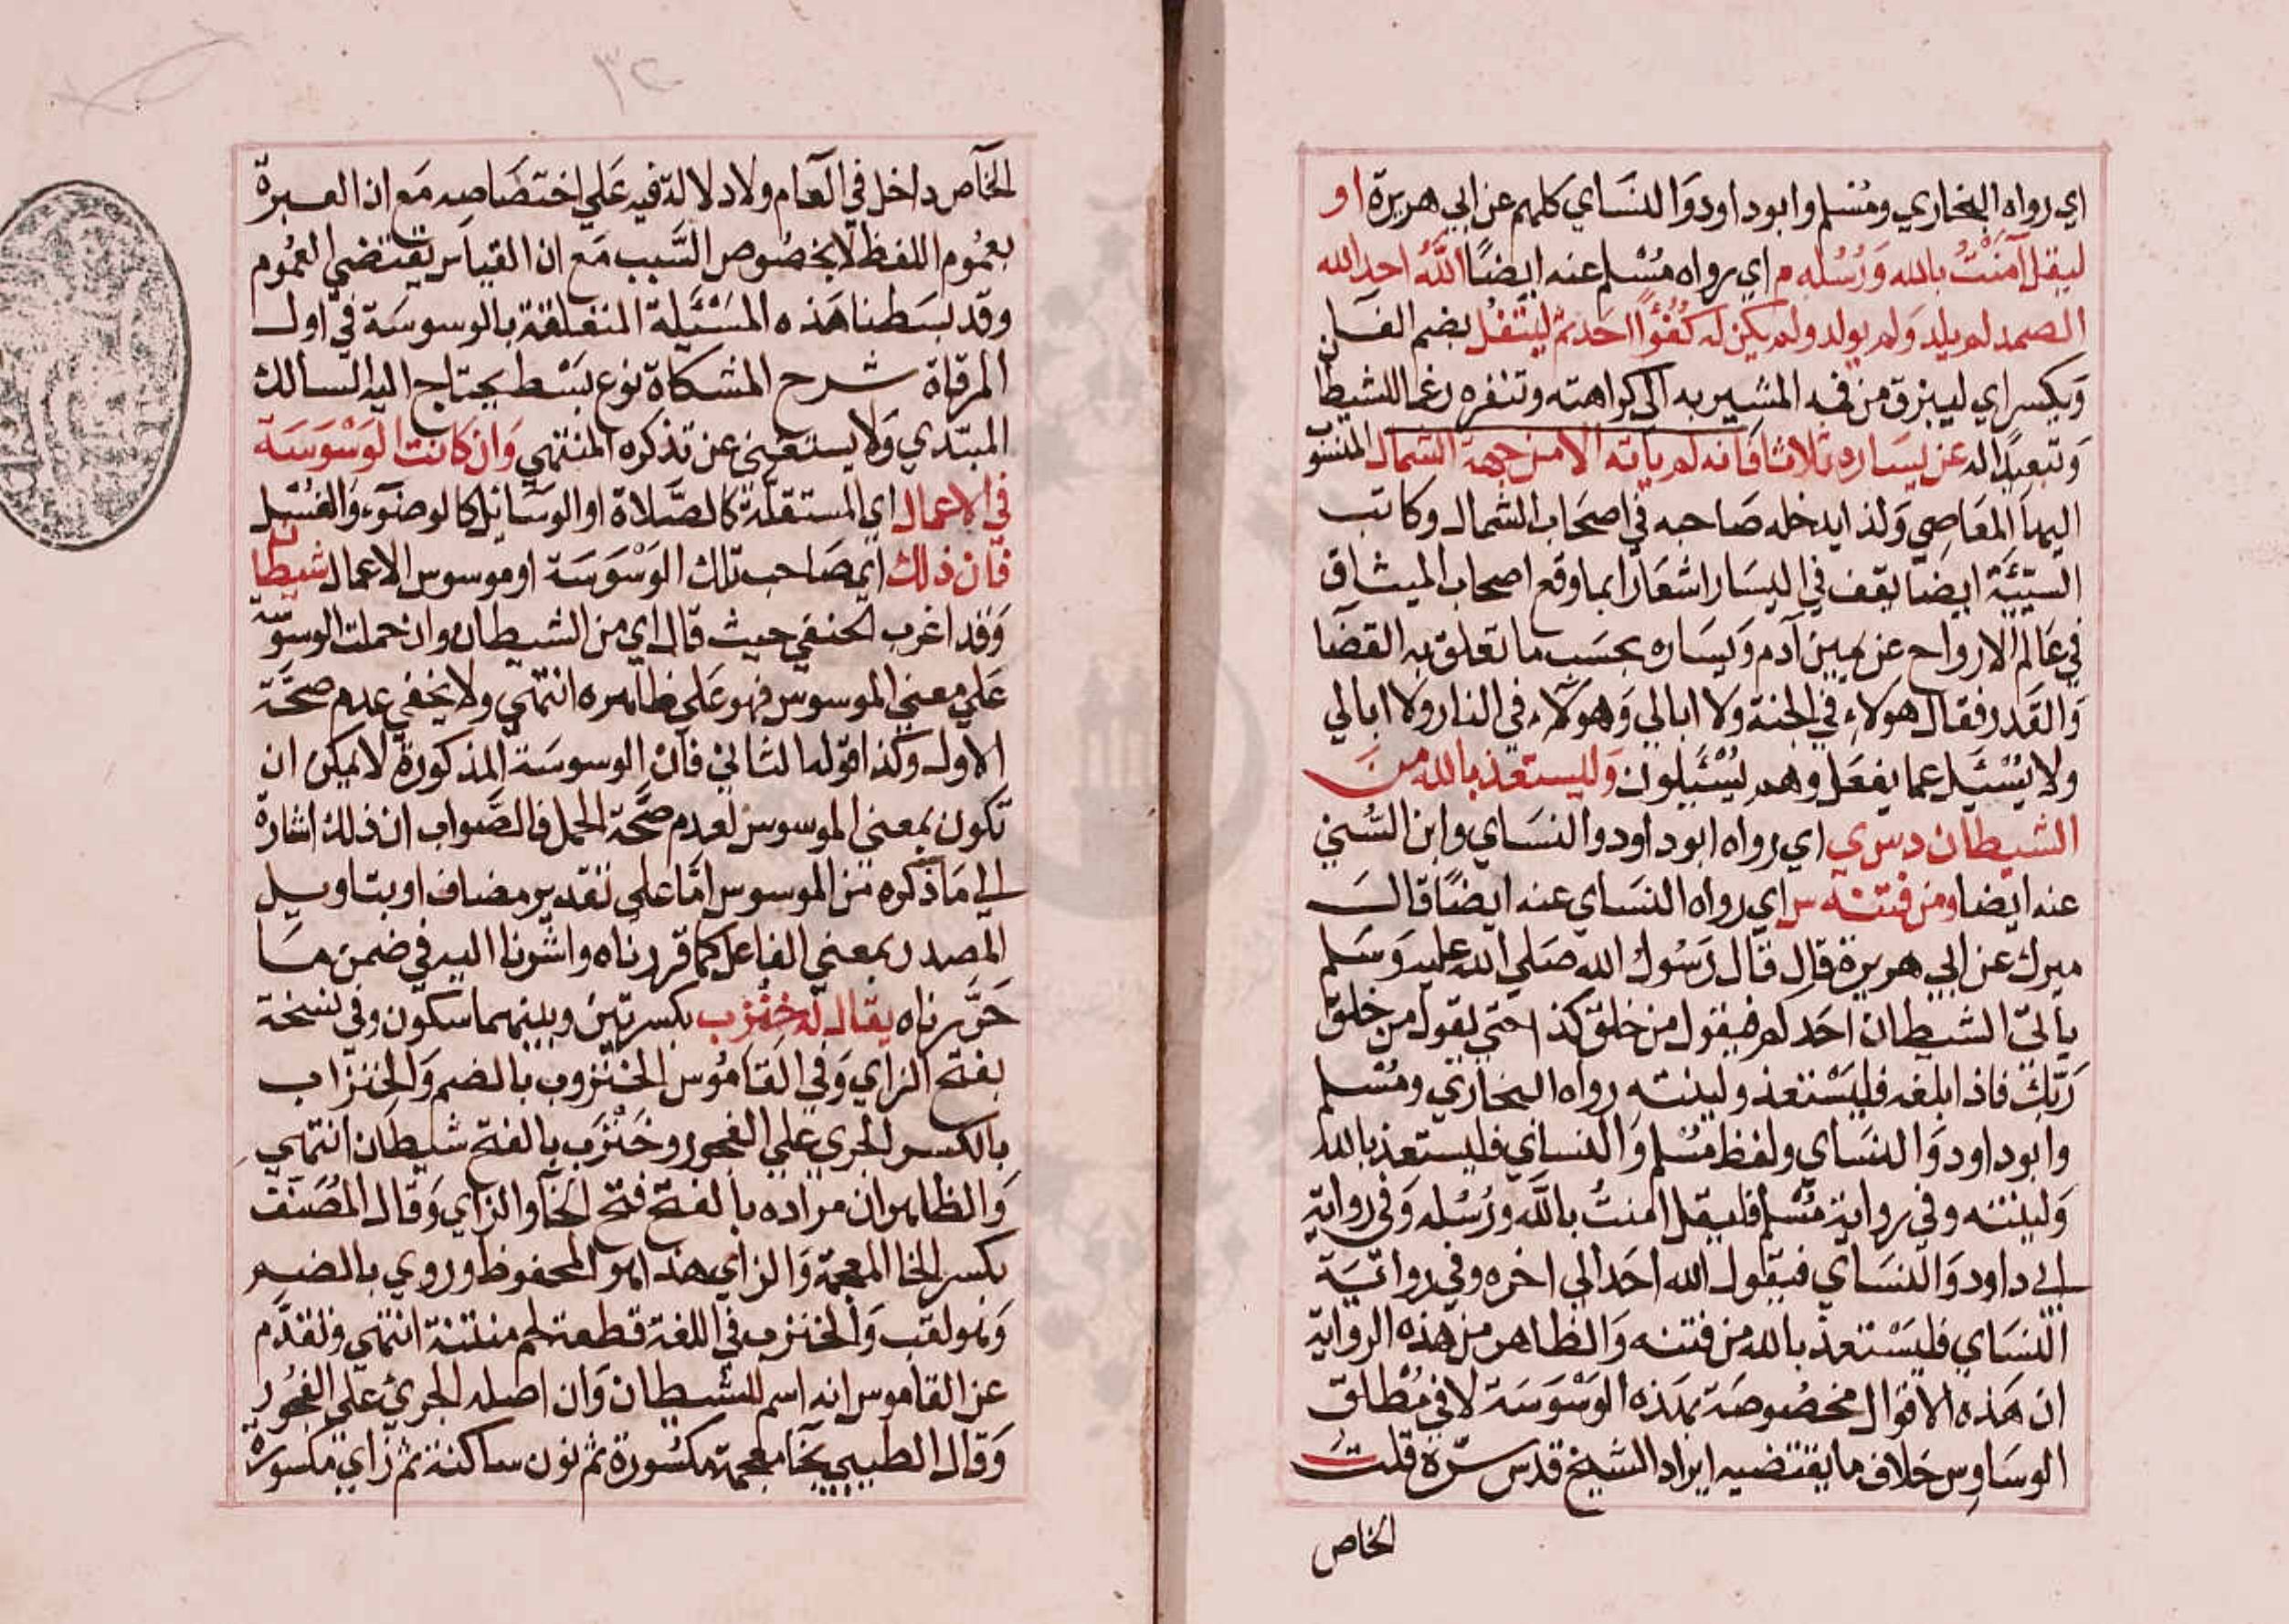 اي رواه البخاري ومسلم وابو داود والنساي كلهم عن ابي هريرة او
ليقل آمنت بالله ورسله م اي رواه مسلم عنه ايضا الله احد الله
الصمد لم يلد ولم يولد ولم يكن له كفوا احد ثم ليتفل بضم الفا
وبكسر اي ليبزق من فيه المشير به الى كراهته وتنفره رغما للشيطا
وتبعيدا له عن يساره ثلاثا فانه لم ياته الا من جهة الشمال المنسو
اليها المعاصي ولذا يدخله صاحبه في اصحاب الشمال وكاتب
السيئة ايضا يقف في اليسار اشعارا بما وقع اصحاب الميثاق
في عالم الارواح عن يمين آدم ويساره بحسب ما تعلق به القضا
والقدر فقال هولاء في الجنة ولا ابالي وهولاء في النار ولا ابالي
ولا يسئل عما يفعل وهم يسئلون وليستعذ بالله من
الشيطان د س ي اي رواه ابو داود والنساي وابن السني
عنه ايضا ومن فتنته س اي رواه النساي عنه ايضا قال
ميرك عن ابي هريرة قال قال رسول الله صلي الله عليه وسلم
ياتي الشيطان احدكم فيقول من خلق كذا حتي يقول من خلق
ربك فاذا بلغه فليستعذ ولينته رواه البخاري ومسلم
وابو داود والنساي ولفظ مسلم والنساي فليستعذ بالله
ولينته وفي رواية مسلم فليقل امنت بالله ورسله وفي رواية
ابي داود والنساي فيقول الله احد الي اخره وفي رواية
النساي فليستعذ بالله من فتنه والظاهر من هذه الرواية
ان هذه الاقوال مخصوصة بهذه الوسوسة لا في مطلق
الوساوس خلاف ما يقتضيه ايراد الشيخ قدس سره قلت
الخاص
٣٢
الخاص داخل في العام ولا دلالة فيه علي اختصاصه مع ان العبرة
بعموم اللفظ لا بخصوص السبب مع ان القياس يقتضي العموم
وقد بسطنا هذه المسئلة المتعلقة بالوسوسة في اول
المرقاة شرح المشكاة نوع بسط يحتاج اليه السالك
المبتدي ولا يستغني عن تذكره المنتهي وان كانت الوسوسة
في الاعمال اي المستقلة كالصلاة او الوسائل كالوضوء والغسل
فان ذلك اي صاحب تلك الوسوسة او موسوس الاعمال شيطا
وقد اغرب الحنفي حيث قال اي من الشيطان وان حملت الوسوسة
علي معني الموسوس فهو علي ظاهره انتهي ولا يخفي عدم صحة
الاول وكذا قوله الثاني فان الوسوسة المذكورة لا يمكن ان
تكون بمعني الموسوس لعدم صحة الحمل فالصواب ان ذلك اشارة
الي ما ذكره من الموسوس اما علي تقدير مضاف او بتاويل
المصدر بمعني الفاعل كما قررناه واشرنا اليه في ضمن ما
حررناه يقال له خنزب بكسرتين وبينهما سكون وفي نسخة
بفتح الزاي وفي القاموس الخنزوب بالضم والخنزاب
بالكسر الجري علي الفجور وخنزب بالفتح شيطان انتهي
والظاهر ان مراده بالفتح فتح الخا والزاي وقال المصنف
بكسر الخا المعجمة والزاي هذا هو المحفوظ وروي بالضم
وهو لقب والخنزب في اللغة قطعة لحم منتنة انتهي وتقدم
عن القاموس انه اسم للشيطان وان اصله الجري علي الفجور
وقال الطيبي بخا معجمة مكسورة ثم نون ساكنة ثم زاي مكسورة